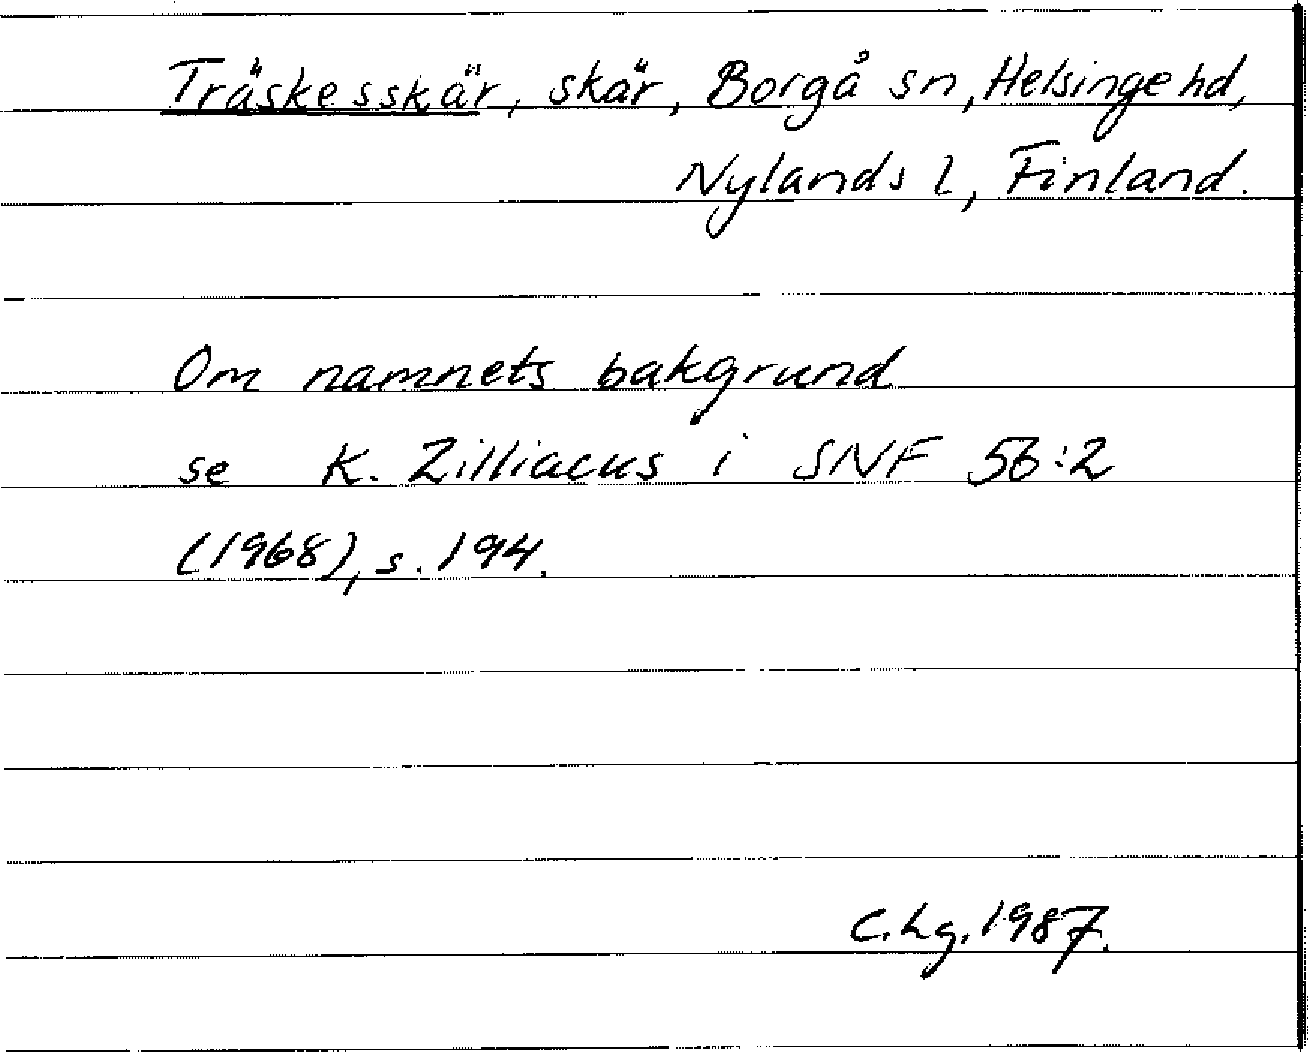 Träskesskär, skär, Borgå sn, Helsinge hd,
Nylands l, Finland.
Om namnets bakgrund
se K. Zilliacus i SNF 56:2
(1968), s. 194.
C.Lg. 1987.